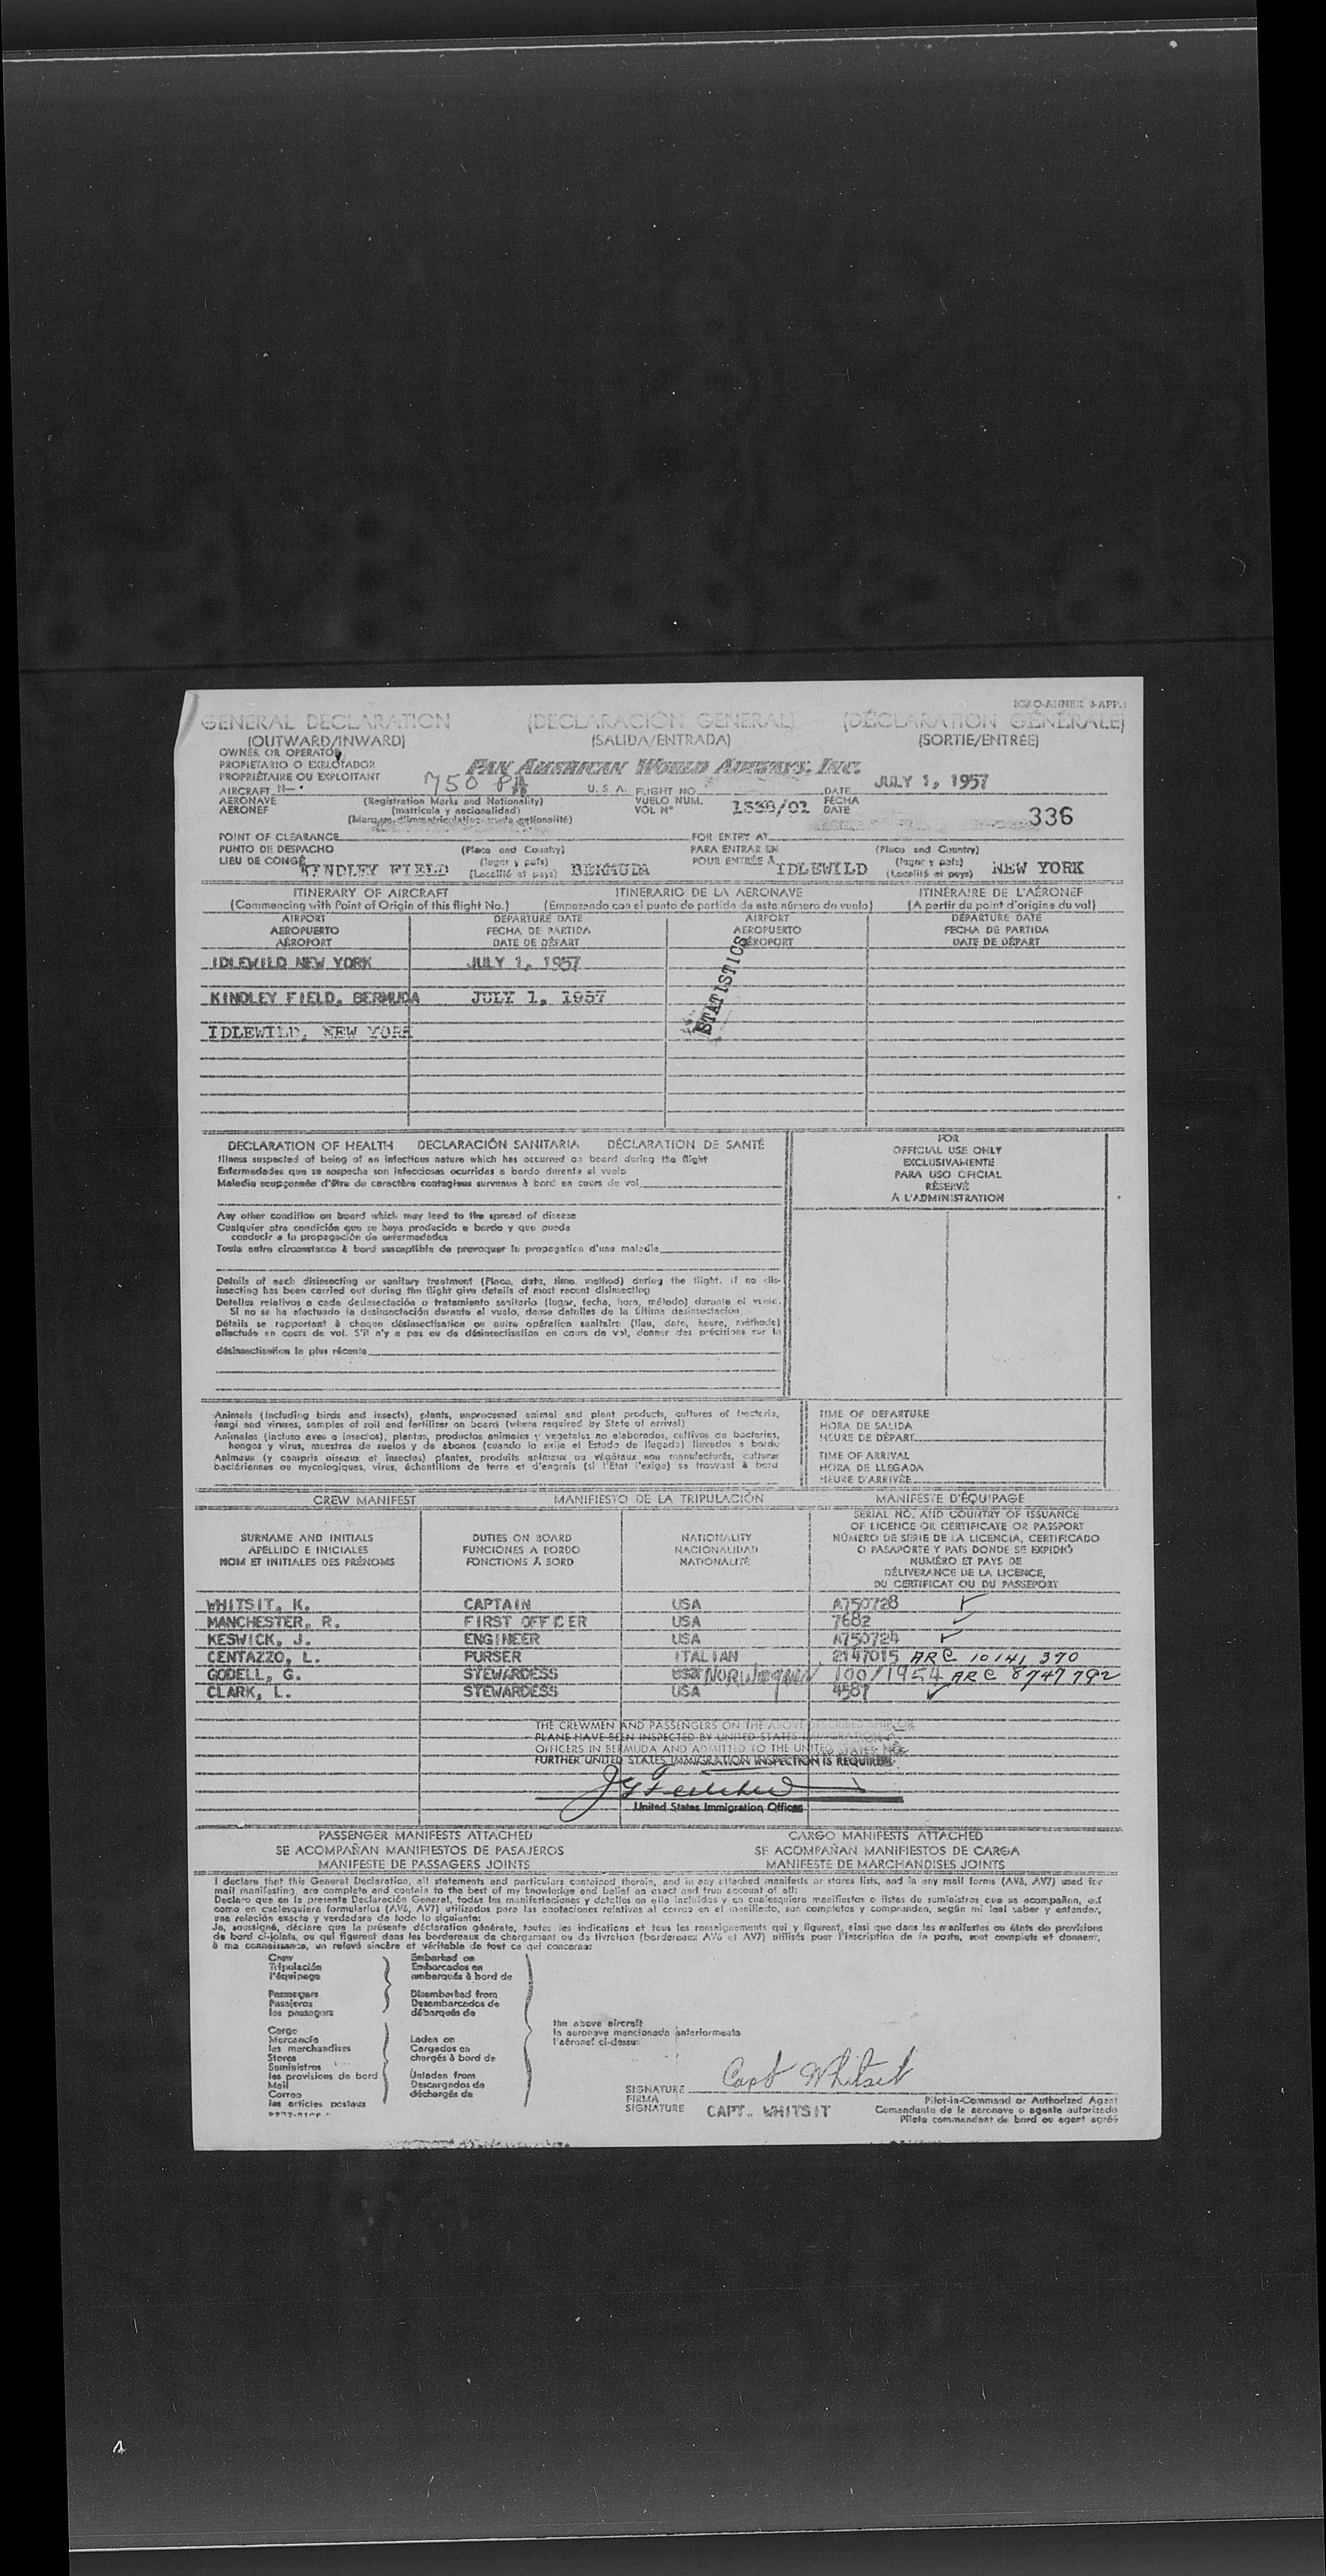 ICAO-ANNEX 9-APP.1
GENERAL DECLARATION (DECLARACIÓN GENERAL) (DÉCLARATION GÉNÉRALE)
(OUTWARD/INWARD) (SALIDA/ENTRADA) (SORTIE/ENTRÉE)
OWNER OR OPERATOR
PROPIETARIO O EXPLOTADOR
PROPRIÉTAIRE OU EXPLOITANT
PAN AMERICAN WORLD AIRWAYS, INC.
AIRCRAFT N- 750 PA U. S. A. FLIGHT NO. DATE JULY 1, 1957
AERONAVE (Registration Marks and Nationality) VUELO NUM. FECHA
AERONEF (matrícula y nacionalidad) VOL N° DATE
336
POINT OF CLEARANCE FOR ENTRY AT
PUNTO DE DESPACHO (Place and Country) PARA ENTRAR EN (Place and Country)
LIEU DE CONGÉ KINDLEY FIELD (lugar y país) BERMUDA POUR ENTRÉE À IDLEWILD (lugar y país) NEW YORK
(Localité et pays) (Localité et pays)
ITINERARY OF AIRCRAFT ITINERARIO DE LA AERONAVE ITINÉRAIRE DE L'AÉRONEF
(Commencing with Point of Origin of this flight No.) (Empezando con el punto de partida de este número de vuelo) (A partir du point d'origine du vol)
AIRPORT DEPARTURE DATE AIRPORT DEPARTURE DATE
AEROPUERTO FECHA DE PARTIDA AEROPUERTO FECHA DE PARTIDA
AÉROPORT DATE DE DÉPART AÉROPORT DATE DE DÉPART
IDLEWILD NEW YORK JULY 1, 1957
KINDLEY FIELD, BERMUDA JULY 1, 1957
IDLEWILD, NEW YORK
STATISTICS
DECLARATION OF HEALTH DECLARACIÓN SANITARIA DÉCLARATION DE SANTÉ
Illness suspected of being of an infectious nature which has occurred on board during the flight
Enfermedades que se sospecha son infecciosas ocurridas a bordo durante el vuelo
Maladie soupçonnée d'être de caractère contagieux survenue à bord en cours de vol
Any other condition on board which may lead to the spread of disease
Cualquier otra condición que se haya producido a bordo y que pueda
conducir a la propagación de enfermedades
Toute autre circonstance à bord susceptible de provoquer la propagation d'une maladie
Details of each disinsecting or sanitary treatment (Place, date, time, method) during the flight. If no dis-
insecting has been carried out during the flight give details of most recent disinsecting
Detalles relativos a cada desinsectación o tratamiento sanitario (lugar, fecha, hora, método) durante el vuelo.
Si no se ha efectuado la desinsectación durante el vuelo, dense detalles de la última desinsectación
Détails se rapportant à chaque désinsectisation ou autre opération sanitaire (lieu, date, heure, méthode)
effectuée en cours de vol. S'il n'y a pas eu de désinsectisation en cours de vol, donner des précisions sur la
désinsectisation la plus récente
FOR
OFFICIAL USE ONLY
EXCLUSIVAMENTE
PARA USO OFICIAL
RÉSERVÉ
À L'ADMINISTRATION
Animals (including birds and insects), plants, unprocessed animal and plant products, cultures of bacteria,
fungi and viruses, samples of soil and fertilizer on board (where required by State of arrival)
Animales (incluso aves e insectos), plantas, productos animales y vegetales no elaborados, cultivos de bacterias,
hongos y virus, muestras de suelos y de abonos (cuando lo exija el Estado de llegada) llevados a bordo
Animaux (y compris oiseaux et insectes) plantes, produits animaux ou végétaux non manufacturés, cultures
bactériennes ou mycologiques, virus, échantillons de terre et d'engrais (si l'Etat l'exige) se trouvant à bord
TIME OF DEPARTURE
HORA DE SALIDA
HEURE DE DÉPART
TIME OF ARRIVAL
HORA DE LLEGADA
HEURE D'ARRIVÉE
CREW MANIFEST MANIFIESTO DE LA TRIPULACIÓN MANIFESTE D'ÉQUIPAGE
SURNAME AND INITIALS DUTIES ON BOARD NATIONALITY
APELLIDO E INICIALES FUNCIONES A BORDO NACIONALIDAD
NOM ET INITIALES DES PRÉNOMS FONCTIONS À BORD NATIONALITÉ
SERIAL NO. AND COUNTRY OF ISSUANCE
OF LICENCE OR CERTIFICATE OR PASSPORT
NÚMERO DE SERIE DE LA LICENCIA, CERTIFICADO
O PASAPORTE Y PAÍS DONDE SE EXPIDIÓ
NUMÉRO ET PAYS DE
DÉLIVERANCE DE LA LICENCE,
DU CERTIFICAT OU DU PASSEPORT
WHITSIT, K. CAPTAIN USA A750728
MANCHESTER, R. FIRST OFFICER USA 7682
KESWICK, J. ENGINEER USA A750724
CENTAZZO, L. PURSER ITALIAN 2147015 ARC 10141 370
GODELL, G. STEWARDESS USA NORWEGIAN 100/1954 ARC 8747792
CLARK, L. STEWARDESS USA 4587
THE CREWMEN AND PASSENGERS ON THE ABOVE DESCRIBED SHIP OR
PLANE HAVE BEEN INSPECTED BY UNITED STATES IMMIGRATION
OFFICERS IN BERMUDA AND ADMITTED TO THE UNITED STATES. NO
FURTHER UNITED STATES IMMIGRATION INSPECTION IS REQUIRED.
United States Immigration Officer
PASSENGER MANIFESTS ATTACHED CARGO MANIFESTS ATTACHED
SE ACOMPAÑAN MANIFIESTOS DE PASAJEROS SE ACOMPAÑAN MANIFIESTOS DE CARGA
MANIFESTE DE PASSAGERS JOINTS MANIFESTE DE MARCHANDISES JOINTS
I declare that this General Declaration, all statements and particulars contained therein, and in any attached manifests or stores lists, and in any mail forms (AV6, AV7) used for
mail manifesting, are complete and contain to the best of my knowledge and belief an exact and true account of all:
Declaro que en la presente Declaración General, todas las manifestaciones y detalles en ella incluidos y en cualesquiera manifiestos o listas de suministros que se acompañan, así
como en cualesquiera formularios (AV6, AV7) utilizados para las anotaciones relativas al correo en el manifiesto, son completos y comprenden, según mi leal saber y entender,
una relación exacta y verdadera de todo lo siguiente:
Je, soussigné, déclare que la présente déclaration générale, toutes les indications et tous les renseignements qui y figurent, ainsi que dans les manifestes ou états de provisions
de bord ci-joints, ou qui figurent dans les bordereaux de chargement ou de livraison (bordereaux AV6 et AV7) utilisés pour l'inscription de la poste, sont complets et donnent,
à ma connaissance, un relevé sincère et véritable de tout ce qui concerne:
Crew Embarked on
Tripulación Embarcados en
l'équipage embarqués à bord de
Passengers Disembarked from
Pasajeros Desembarcados de
les passagers débarqués de
Cargo
Mercancía Laden on
les marchandises Cargados en
Stores chargés à bord de
Suministros
les provisions de bord Unladen from
Mail Descargados de
Correo déchargés de
les articles postaux
the above aircraft
la aeronave mencionada anteriormente
l'aéronef ci-dessus
SIGNATURE Capt Whitsit
FIRMA
SIGNATURE CAPT. WHITSIT
Pilot-in-Command or Authorized Agent
Comandante de la aeronave o agente autorizado
Pilote commandant de bord ou agent agréé